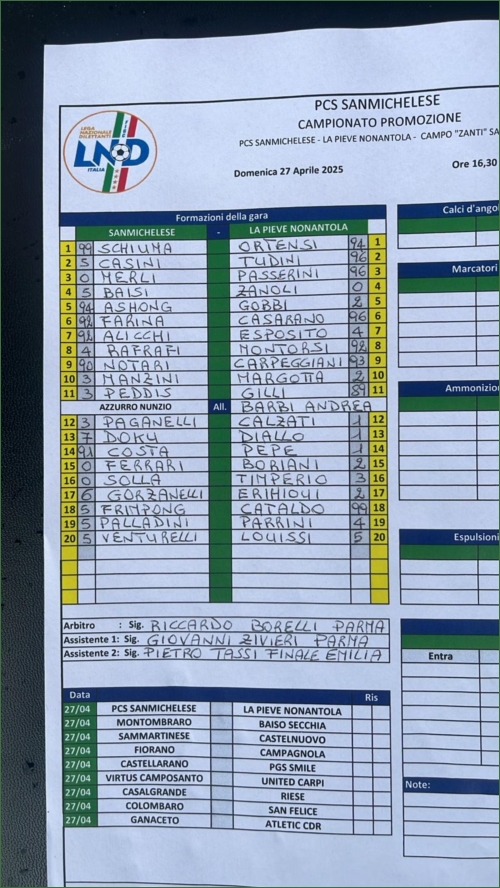 PCS SANMICHELESE
CAMPIONATO PROMOZIONE
PCS SANMICHELESE - LA PIEVE NONANTOLA - CAMPO "ZANTI" SA
LEGA NAZIONALE DILETTANTI
LND
ITALIA
Domenica 27 Aprile 2025 Ore 16,30
Formazioni della gara
SANMICHELESE - LA PIEVE NONANTOLA
1 99 SCHIUMA ORTENSI 94 1
2 5 CASINI TUDINI 96 2
3 0 MERLI PASSERINI 96 3
4 5 BAISI ZANOLI 0 4
5 94 ASHONG GOBBI 2 5
6 92 FARINA CASARANO 96 6
7 92 ALICCHI ESPOSITO 4 7
8 4 RAFRAFI MONTORSI 92 8
9 90 NOTARI CARPEGGIANI 93 9
10 3 MANZINI MARGOTTA 2 10
11 3 PEDDIS GILLI 89 11
AZZURRO NUNZIO All. BARBI ANDREA
12 3 PAGANELLI CALZATI 1 12
13 7 DOKU DIALLO 1 13
14 91 COSTA PEPE 1 14
15 0 FERRARI BORIANI 2 15
16 0 SOLLA TIMPERIO 3 16
17 6 GORZANELLI ERIHIOUI 2 17
18 5 FRIMPONG CATALDO 99 18
19 5 PALLADINI PARRINI 4 19
20 5 VENTURELLI LOUISSI 5 20
Arbitro : Sig. RICCARDO BORELLI PARMA
Assistente 1: Sig. GIOVANNI ZIVIERI PARMA
Assistente 2: Sig. PIETRO TASSI FINALE EMILIA
Data Ris
27/04 PCS SANMICHELESE LA PIEVE NONANTOLA
27/04 MONTOMBRARO BAISO SECCHIA
27/04 SAMMARTINESE CASTELNUOVO
27/04 FIORANO CAMPAGNOLA
27/04 CASTELLARANO PGS SMILE
27/04 VIRTUS CAMPOSANTO UNITED CARPI
27/04 CASALGRANDE RIESE
27/04 COLOMBARO SAN FELICE
27/04 GANACETO ATLETIC CDR
Calci d'ango
Marcatori
Ammonizio
Espulsioni
Entra
Note: